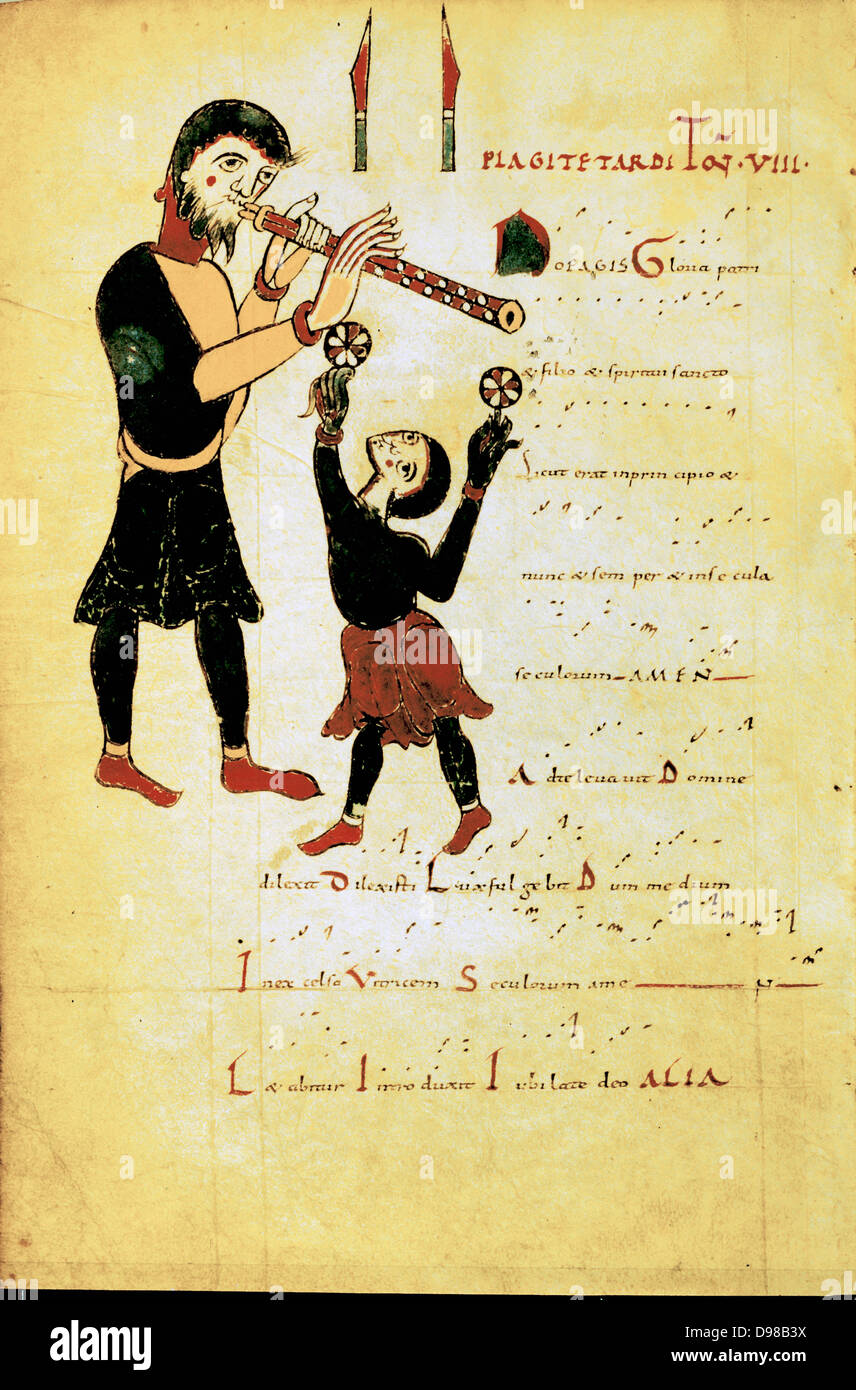 PLAGI TETARDI TOÑ·VIII·
NOEAGIS Gloria patri
& filio & spiritui sancto
Sicut erat inprin cipio &
nunc & sem per & inse cula
seculorum AMEN
Adteleuauit Domine
dilexit Dilexisti Lux ful ge bit Dum medium
Inex celso Victricem Seculorum ame N
L&abitur Introduxit Iubilate deo ALIA
alamy
Image ID: D98B3X
www.alamy.com